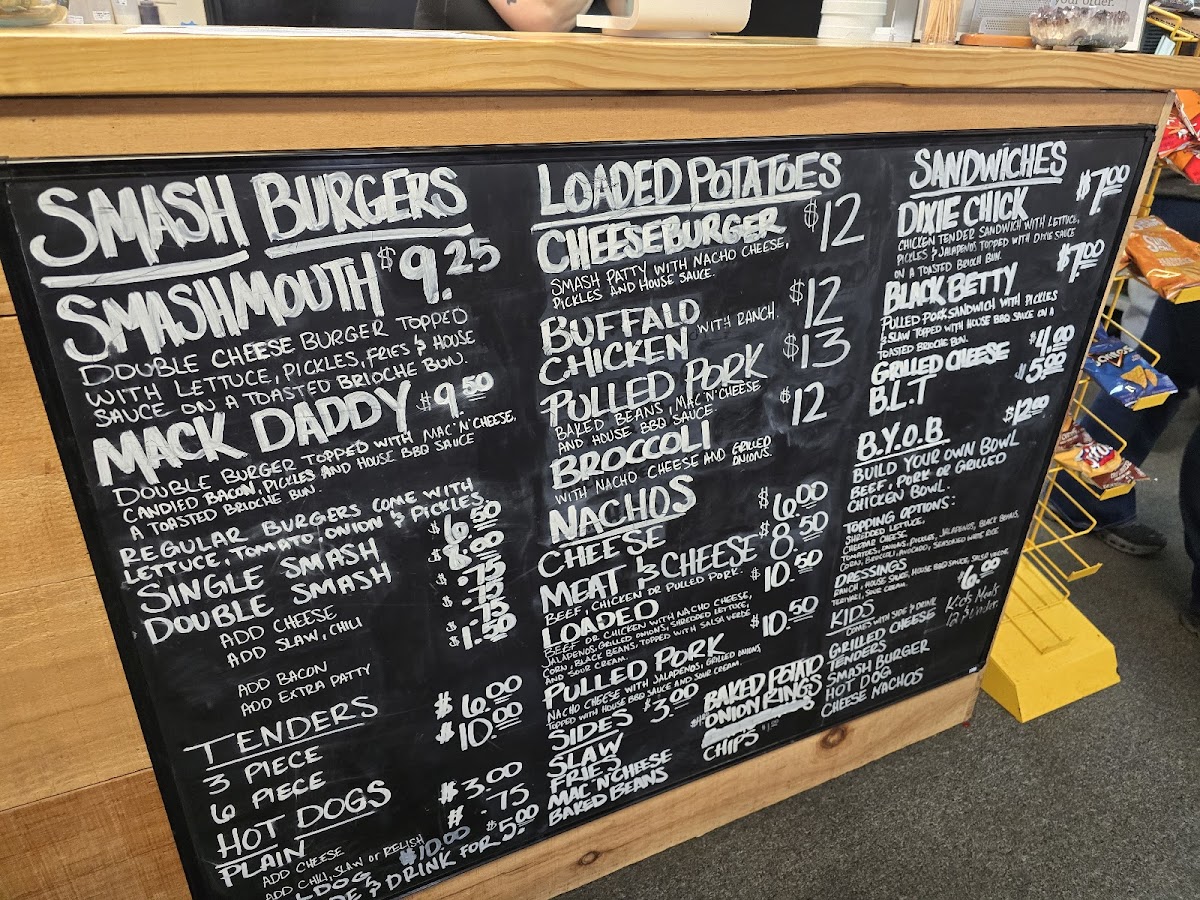 your order.
SMASH BURGERS
SMASHMOUTH $9.25
DOUBLE CHEESE BURGER TOPPED
WITH LETTUCE, PICKLES, FRIES & HOUSE
SAUCE ON A TOASTED BRIOCHE BUN.
MACK DADDY $9.50
DOUBLE BURGER TOPPED WITH MAC'N'CHEESE,
CANDIED BACON, PICKLES AND HOUSE BBQ SAUCE
A TOASTED BRIOCHE BUN.
REGULAR BURGERS COME WITH
LETTUCE, TOMATO, ONION & PICKLES
SINGLE SMASH $6.50
DOUBLE SMASH $8.00
ADD CHEESE .75
ADD SLAW, CHILI .75
ADD BACON
ADD EXTRA PATTY $1.50
TENDERS
3 PIECE $6.00
6 PIECE $10.00
HOT DOGS
PLAIN $3.00
ADD CHEESE $.75
ADD CHILI, SLAW OR RELISH
$10.00
& DRINK FOR $5.00
LOADED POTATOES
CHEESEBURGER $12
SMASH PATTY WITH NACHO CHEESE,
PICKLES AND HOUSE SAUCE.
BUFFALO
CHICKEN WITH RANCH. $12
PULLED PORK $13
BAKED BEANS, MAC'N'CHEESE
AND HOUSE BBQ SAUCE.
BROCCOLI $12
WITH NACHO CHEESE AND GRILLED
ONIONS.
NACHOS
CHEESE $6.00
MEAT & CHEESE $8.50
BEEF, CHICKEN OR PULLED PORK.
LOADED $10.50
BEEF OR CHICKEN WITH NACHO CHEESE,
JALAPENOS, GRILLED ONIONS, SHREDDED LETTUCE,
CORN, BLACK BEANS, TOPPED WITH SALSA VERDE
AND SOUR CREAM.
PULLED PORK $10.50
NACHO CHEESE WITH JALAPENOS, GRILLED ONIONS
TOPPED WITH HOUSE BBQ SAUCE AND SOUR CREAM.
SIDES $3.00
SLAW
FRIES
MAC N'CHEESE
BAKED BEANS
BAKED POTATO
ONION RINGS
CHIPS
SANDWICHES
DIXIE CHICK $7.00
CHICKEN TENDER SANDWICH WITH LETTUCE,
PICKLES & JALAPENOS TOPPED WITH DIXIE SAUCE
ON A TOASTED BRIOCH BUN.
BLACK BETTY $7.00
PULLED PORK SANDWICH WITH PICKLES
& SLAW TOPPED WITH HOUSE BBQ SAUCE ON A
TOASTED BRIOCHE BUN.
GRILLED CHEESE $4.00
B.L.T $5.00
B.Y.O.B $12.00
BUILD YOUR OWN BOWL
BEEF, PORK OR GRILLED
CHICKEN BOWL.
TOPPING OPTIONS:
SHREDDED LETTUCE,
CHEDDAR CHEESE,
TOMATOES, ONIONS, PICKLES, JALAPENOS, BLACK BEANS,
CORN, BROCCOLI, AVOCADO, SEASONED WHITE RICE
DRESSINGS
RANCH, HOUSE SAUCE, HOUSE BBQ SAUCE, SALSA VERDE
TERIYAKI, SOUR CREAM.
KIDS $6.00
COMES WITH SIDE & DRINK
Kids Meals
12 & under
GRILLED CHEESE
TENDERS
SMASH BURGER
HOT DOG
CHEESE NACHOS